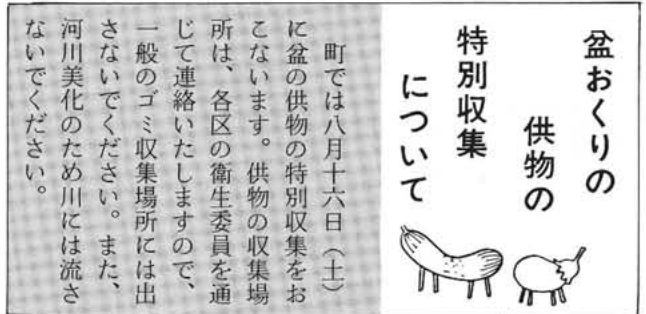 盆おくりの
供物の
特別収集
について
町では八月十六日（土）
に盆の供物の特別収集をお
こないます。供物の収集場
所は、各区の衛生委員を通
じて連絡いたしますので、
一般のゴミ収集場所には出
さないでください。また、
河川美化のため川には流さ
ないでください。